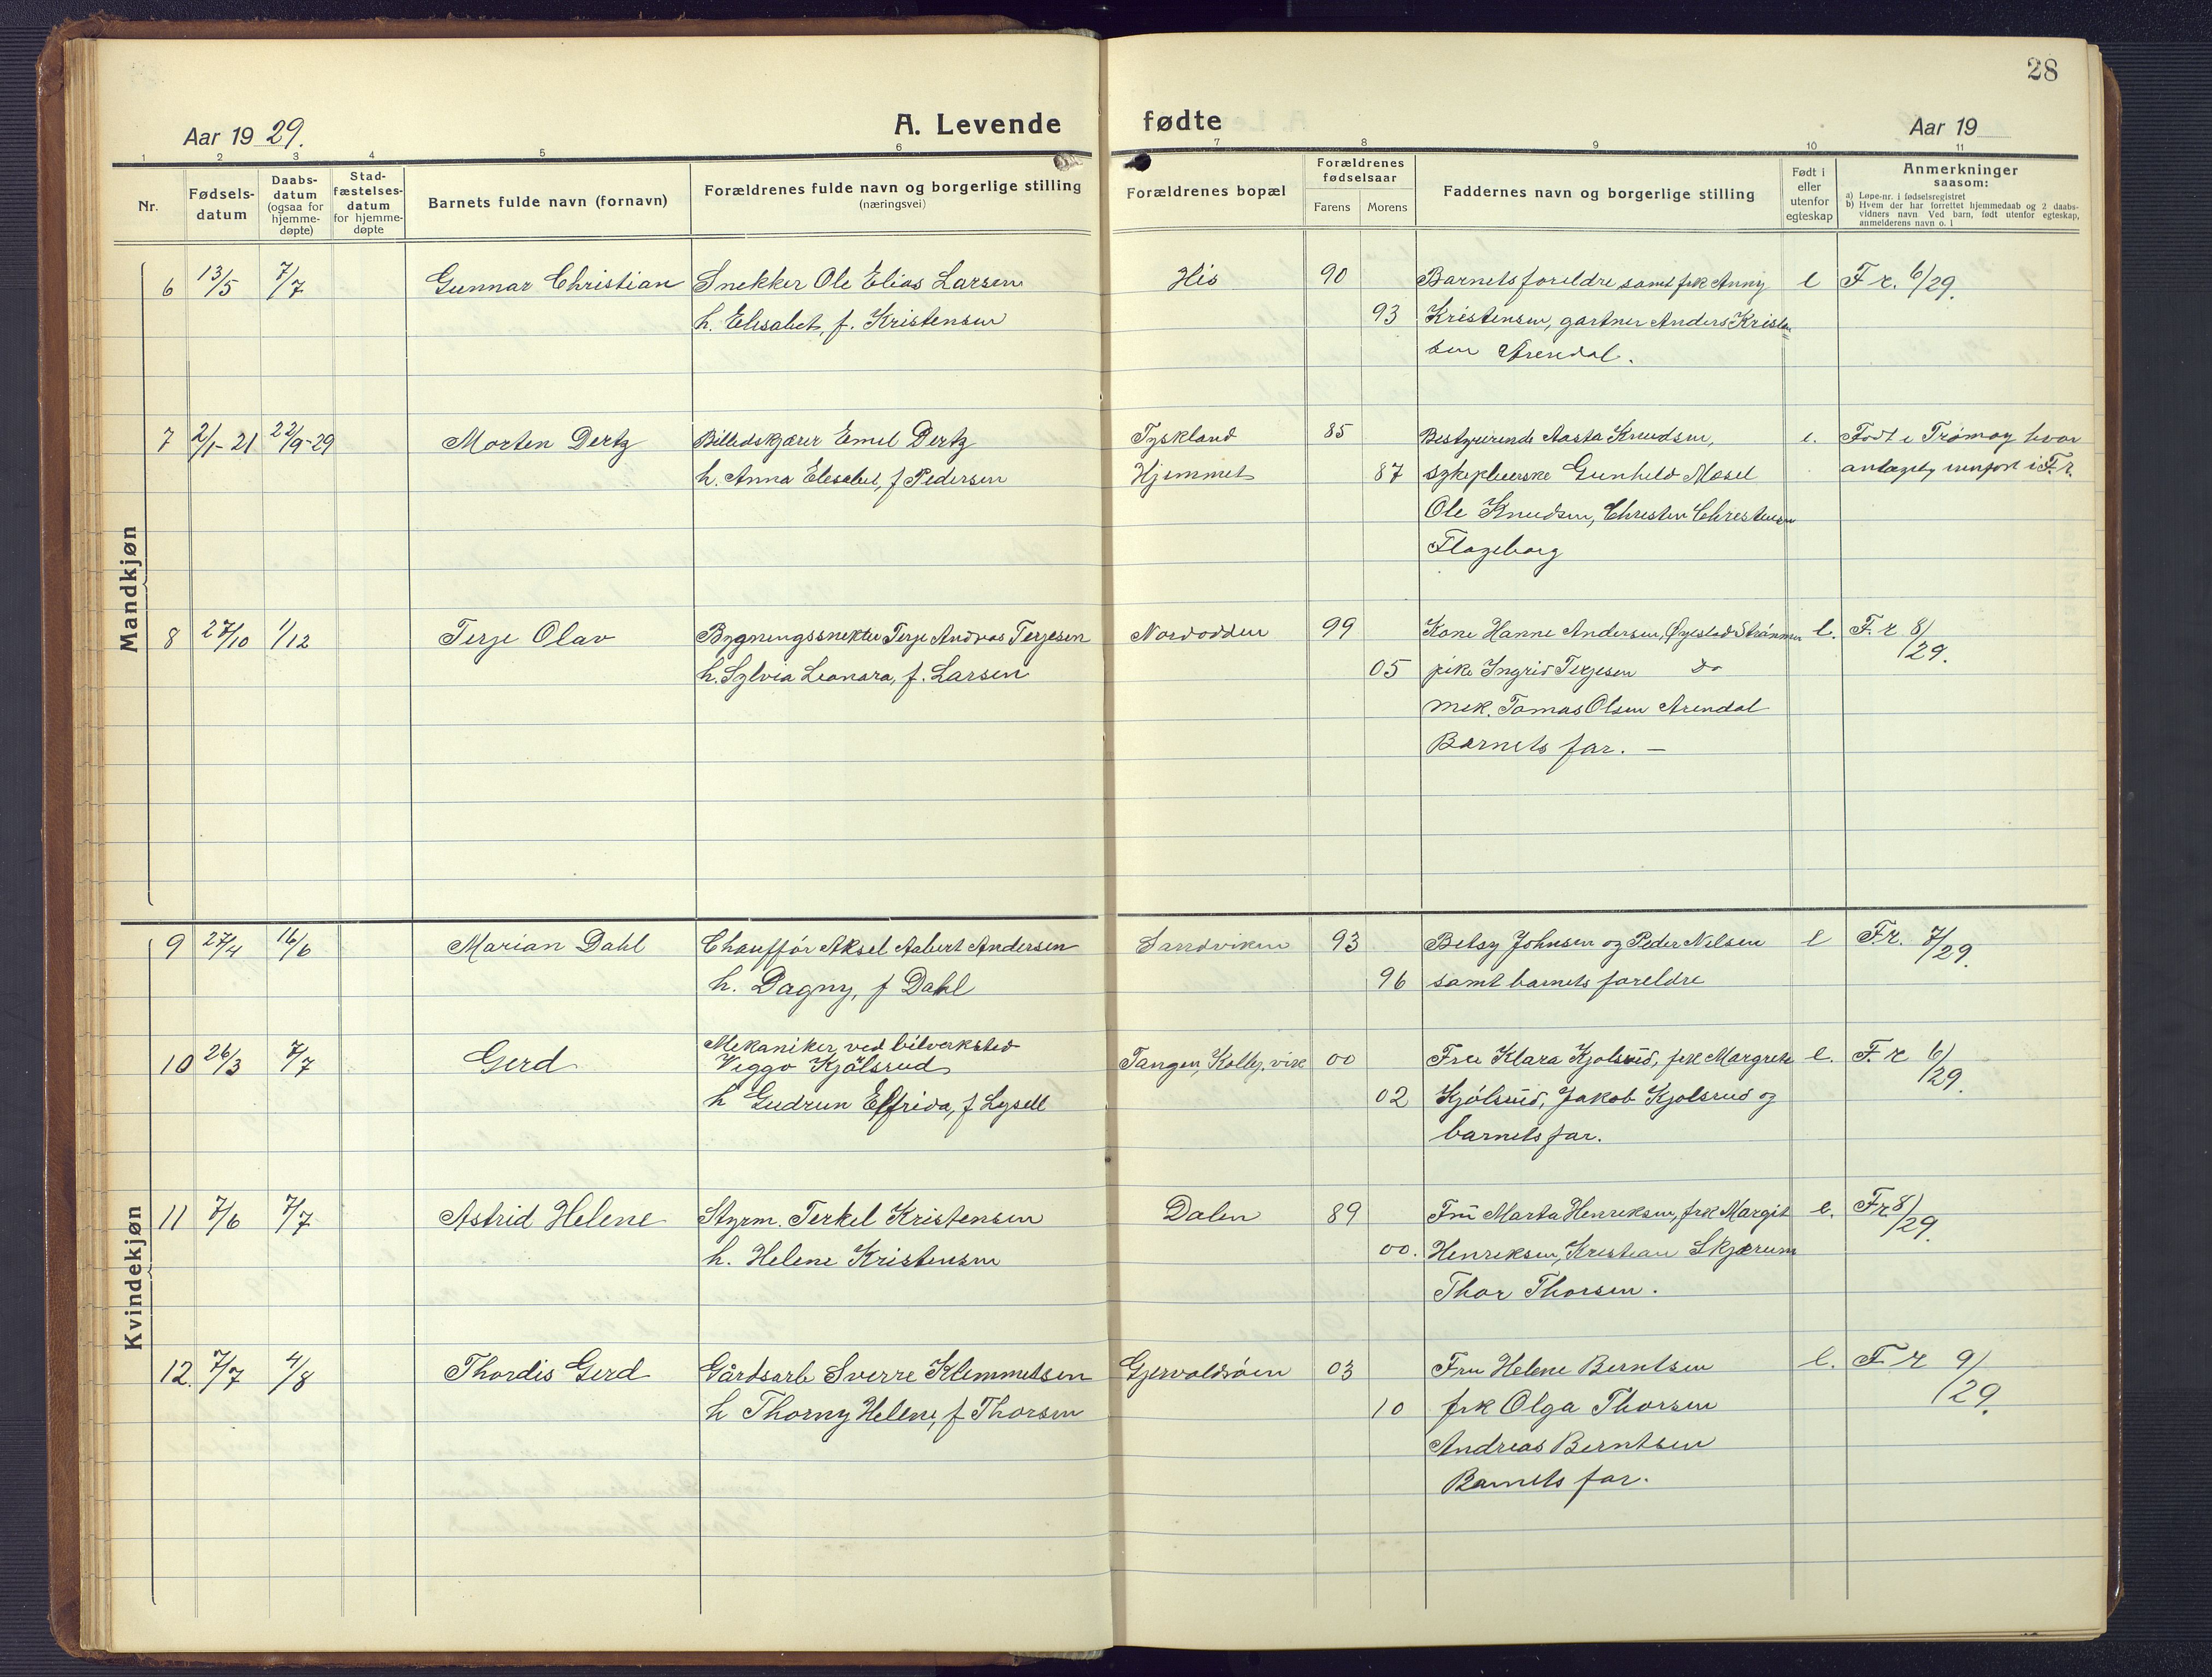 28
Aar 1929.
A. Levende
fødte
Aar 19
1 2 3 4 5 6 7 8 9 10 11
Nr.
Fødsels-
datum
Daabs-
datum
(ogsaa for
hjemme-
døpte)
Stad-
fæstelses-
datum
for hjemme-
døpte
Barnets fulde navn (fornavn)
Forældrenes fulde navn og borgerlige stilling
(næringsvei)
Forældrenes bopæl
Forældrenes
fødselsaar
Farens Morens
Faddernes navn og borgerlige stilling
Født i
eller
utenfor
egteskap
Anmerkninger
saasom:
a) Løpe-nr. i fødselsregistret
b) Hvem der har forrettet hjemmedaab og 2 daabs-
vidners navn. Ved barn, født utenfor egteskap,
anmelderens navn o. l
Mandkjøn
6 13/5 7/7 Gunnar Christian Snekker Ole Elias Larsen His 90 Barnets foreldre samt frk Anny e F r. 6/29.
h. Elisabet, f. Kristensen 93 Kristensen, gartner Anders Kristen
sen Arendal.
7 2/1-21 22/9-29 Morten Dertz Billedskjærer Emil Dertz Tyskland 85 Bestyrerinde Aasta Knudsen, e. Født i Tromøy hvor
h. Anna Elesabet, f Pedersen Hjemmet 87 sykepleierske Gunhild Mosel antagelig innført i F.r.
Ole Knudsen, Christen Christensen
Flageborg
8 27/10 1/12 Terje Olav Bygningssnekker Terje Andreas Terjesen Nordodden 99 Kone Hanne Andersen, Øyestad Strømmen e. F. r 8/29.
h. Sylvia Leonara, f. Larsen 05 pike Ingrid Terjesen do
mek. Tomas Olsen Arendal
Barnets far. —
Kvindekjøn
9 27/4 16/6 Marian Dahl Chauffør Aksel Aabert Andersen Sandviken 93 Betsy Johnsen og Peder Nilsen e Fr. 7/29.
h. Dagny, f Dahl 96 samt barnets foreldre
10 26/3 7/7 Gerd Mekaniker ved bilverksted
Viggo Kjølsrud Tangen, Kolbj. vik 00 Fru Klara Kjolsrud, frk Margrete e. F. r 6/29.
h Gudrun Elfrida, f Lysell 02 Kjølsrud, Jakob Kjolsrud og
barnets far.
11 7/6 7/7 Astrid Helene Styrm. Terkel Kristensen Dalen 89 Fru Marta Henriksen, frk Margit e. Fr 8/29.
h. Helene Kristensen 00. Henriksen, Kristian Skjærum
Thor Thorsen.
12. 7/7 4/8 Thordis Gerd Gårdsarb Sverre Klemmetsen Gjervoldsøen 03 Fru Helene Berntsen e. F. r 9/29.
h Thorny Helene, f Thorsen 10 frk Olga Thorsen
Andreas Berntsen
Barnets far.